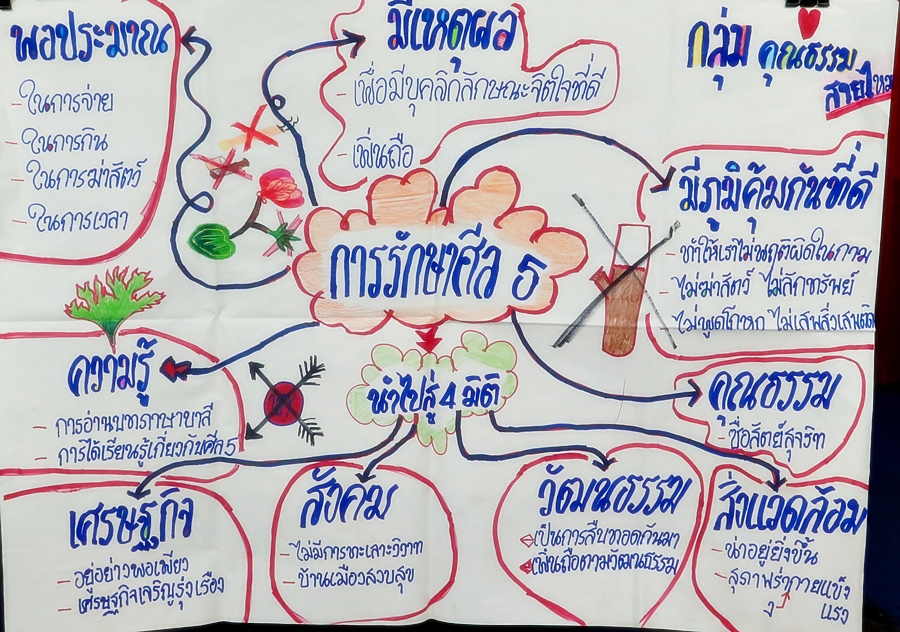 พอประมาณ
- ในการจ่าย
- ในการกิน
- ในการฆ่าสัตว์
- ในการเวลา
มีเหตุผล
- เพื่อมีบุคลิกลักษณะจิตใจที่ดี
- เพิ่นถือ
กลุ่ม คุณธรรม
สายไหม
มีภูมิคุ้มกันที่ดี
- ทำให้เราไม่พฤติผิดในกาม
- ไม่ฆ่าสัตว์ ไม่ลักทรัพย์
- ไม่พูดโกหก ไม่เสพสิ่งเสพติด
การรักษาศีล 5
นำไปสู่ 4 มิติ
ความรู้
- การอ่านบทภาษาบาลี
- การได้เรียนรู้เกี่ยวกับศีล 5
คุณธรรม
- ซื่อสัตย์สุจริต
เศรษฐกิจ
- อยู่อย่างพอเพียง
- เศรษฐกิจเจริญรุ่งเรือง
สังคม
- ไม่มีการทะเลาะวิวาท
- บ้านเมืองสงบสุข
วัฒนธรรม
เป็นการสืบทอดกันมา
เพิ่นถือตามวัฒนธรรม
สิ่งแวดล้อม
- น่าอยู่ยิ่งขึ้น
- สุภาพร่างกายแข็ง
แรง